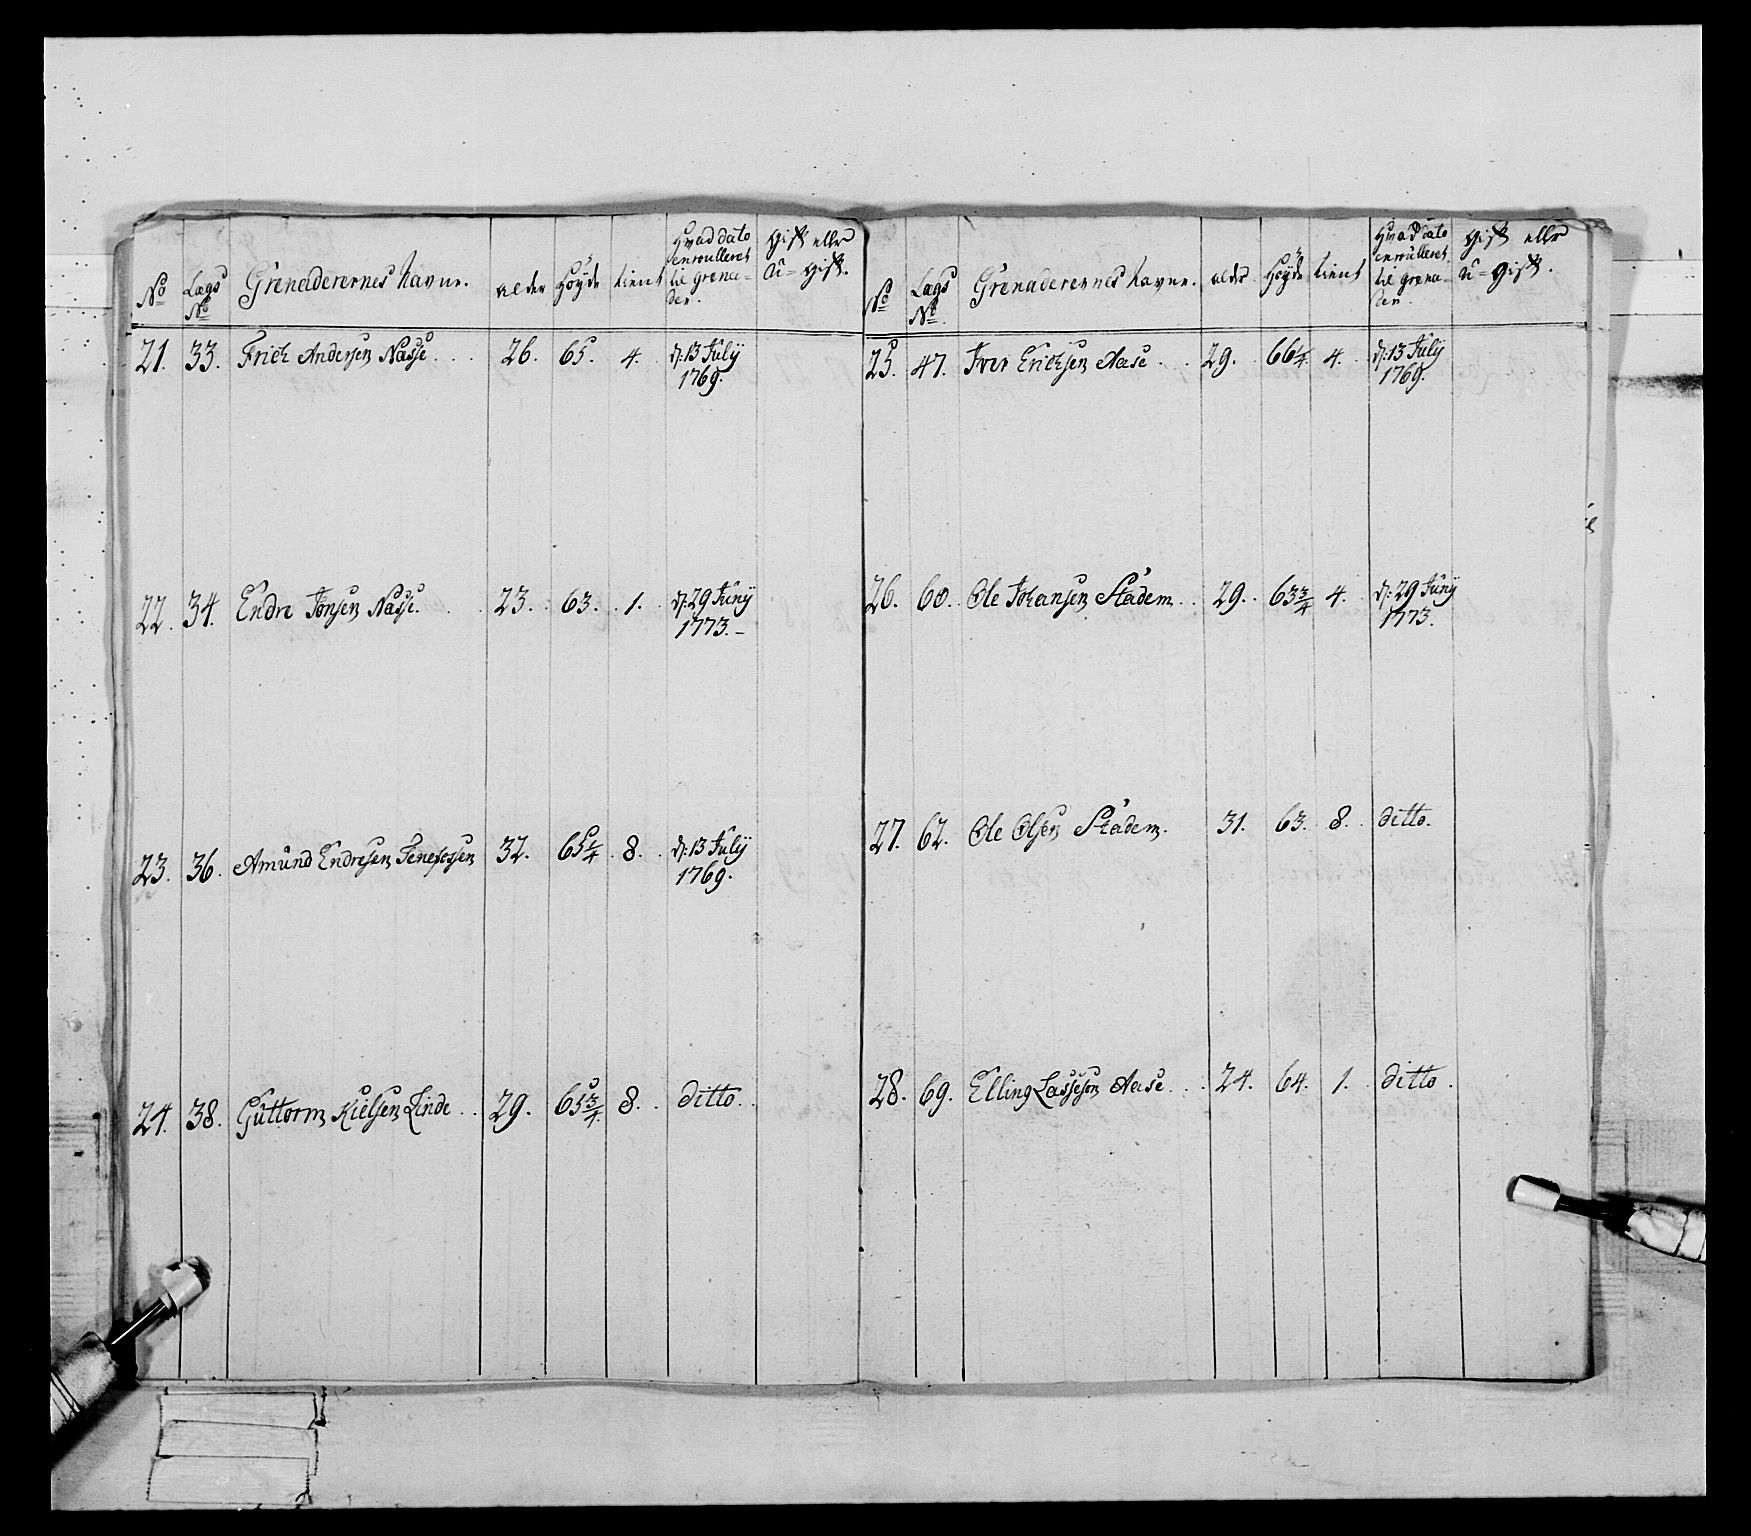 No Lægs No Grenaderernes Navne. alder Høyde tient Hvad dato enroulleret til Grenader. Gift eller U=Gift.
21. 33. Erich Andersen Næsse. 26. 65. 4. d: 13 Julÿ
1769.
22. 34. Endre Jonsen Næsse. 23. 63. 1. d: 29 Junÿ
1773.
23. 36. Amund Endresen 32. 65 1/4 8. d: 13 Julÿ
1769.
24. 38. Guttorm Nielsen Linde 29. 65 3/4 8. ditto.
No Lægs No Grenaderernes Navne. alder Høyde tient Hvad dato enroulleret til Grenader. Gift eller U=Gift.
25. 47. Iver Erichsen Aase 29. 66 1/4 4. d: 13 Julÿ
1769.
26. 60. Ole Johansen Stadem 29. 63 3/4 4. d: 29 Junÿ
1773.
27. 62. Ole Olsen Stadem. 31. 63. 8. ditto.
28. 69. Elling Lassesen Aase 24. 64. 1. ditto.